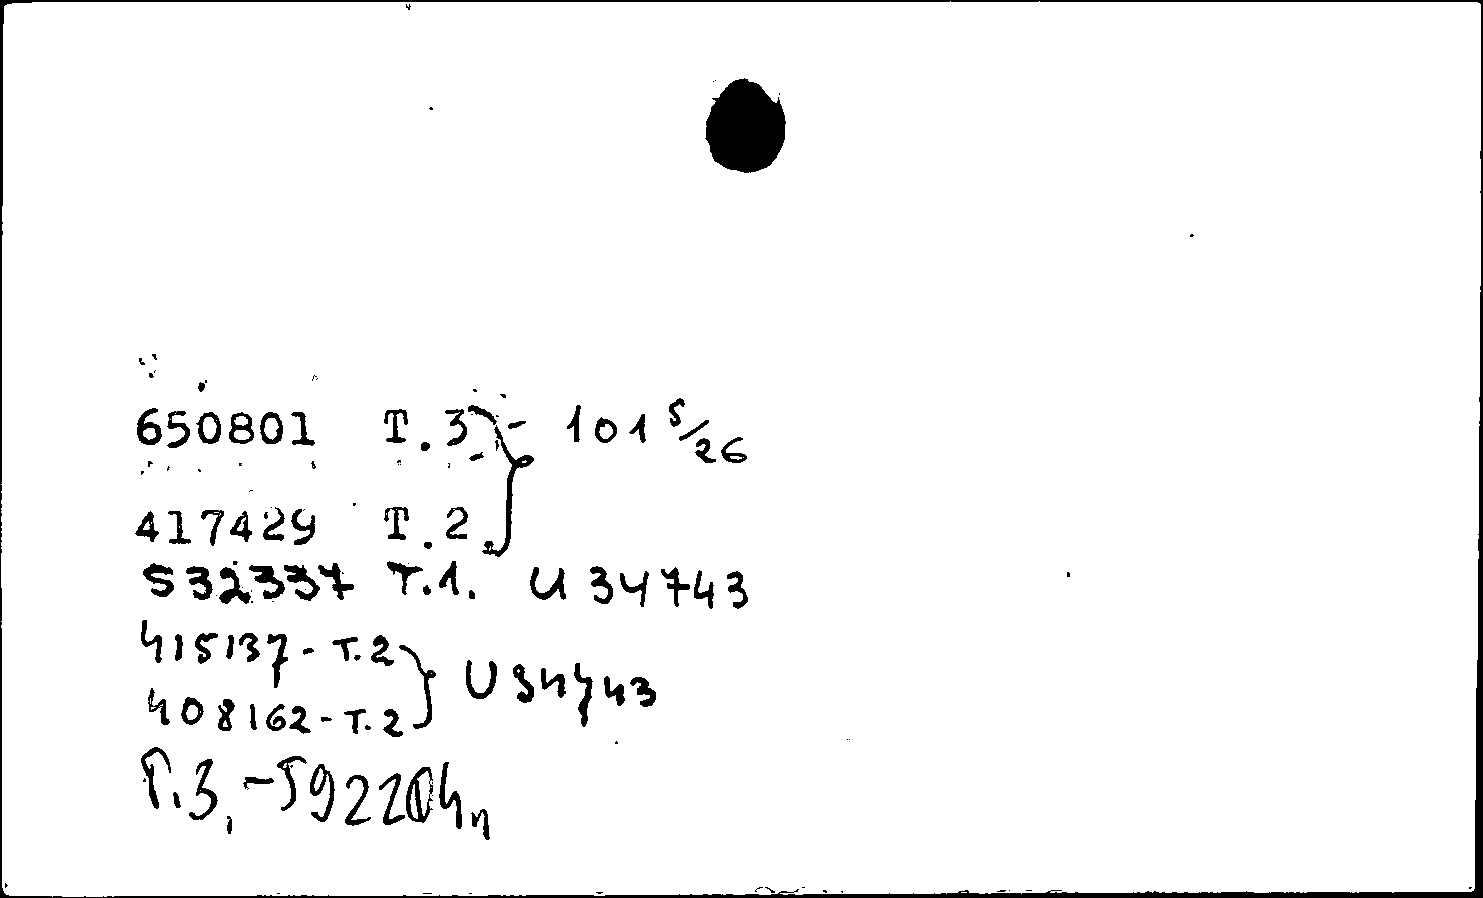 650801 T.3 - 101 5/26
417429 T.2.
532337 T.1. U 34743
415137 - T.2 U 34743
408162 - T.2
T.3, -